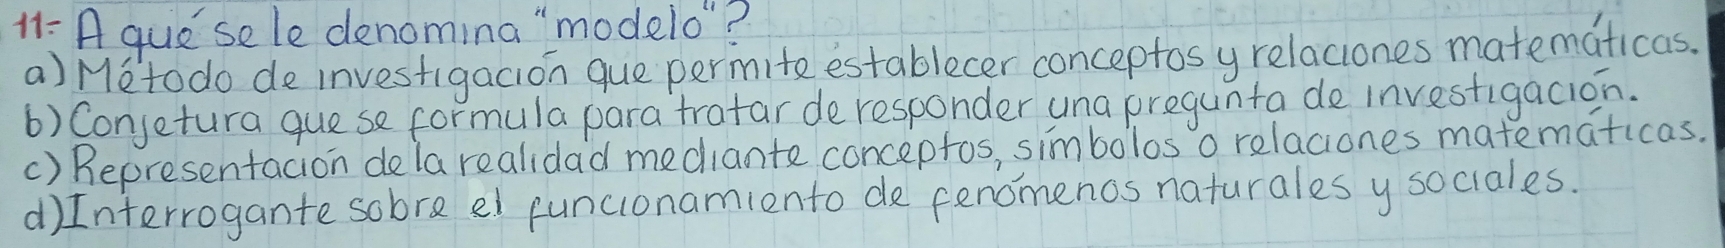 11:- A qué se le denomina "modelo"?
a) Método de investigación que permite establecer conceptos y relaciones matemáticas.
b) Conjetura que se formula para tratar de responder una pregunta de investigación.
c) Representación de la realidad mediante conceptos, símbolos o relaciones matemáticas.
d) Interrogante sobre el funcionamiento de fenómenos naturales y sociales.